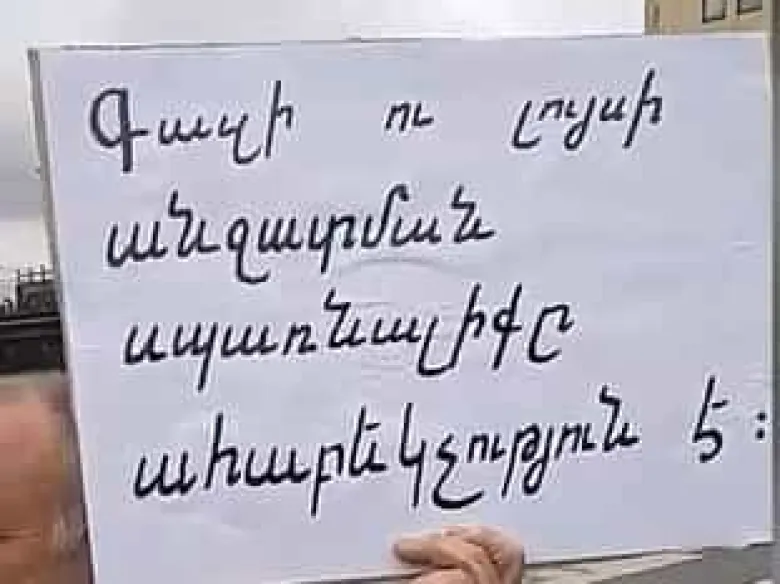 Գազի ու լույսի
անջատման
սպառնալիքը
ահաբեկչություն է: